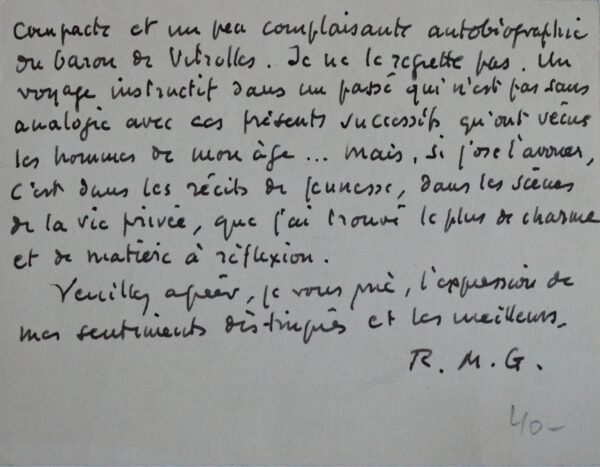 compacte et un peu complaisante autobiographie
du baron de Vitrolles. Je ne le regrette pas. Un
voyage instructif dans un passé qui n'est pas sans
analogie avec ces présents successifs qu'ont vécus
les hommes de mon âge... Mais, si j'ose l'avouer,
c'est dans les récits de jeunesse, dans les scènes
de la vie privée, que j'ai trouvé le plus de charme
et de matière à réflexion.
Veuillez agréer, je vous prie, l'expression de
mes sentiments distingués et les meilleurs.
R. M. G.
40-